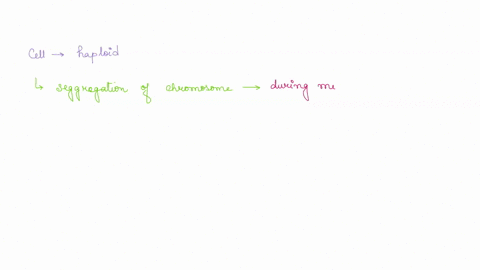 Cell → haploid
↳ seggregation of chromosome → during me